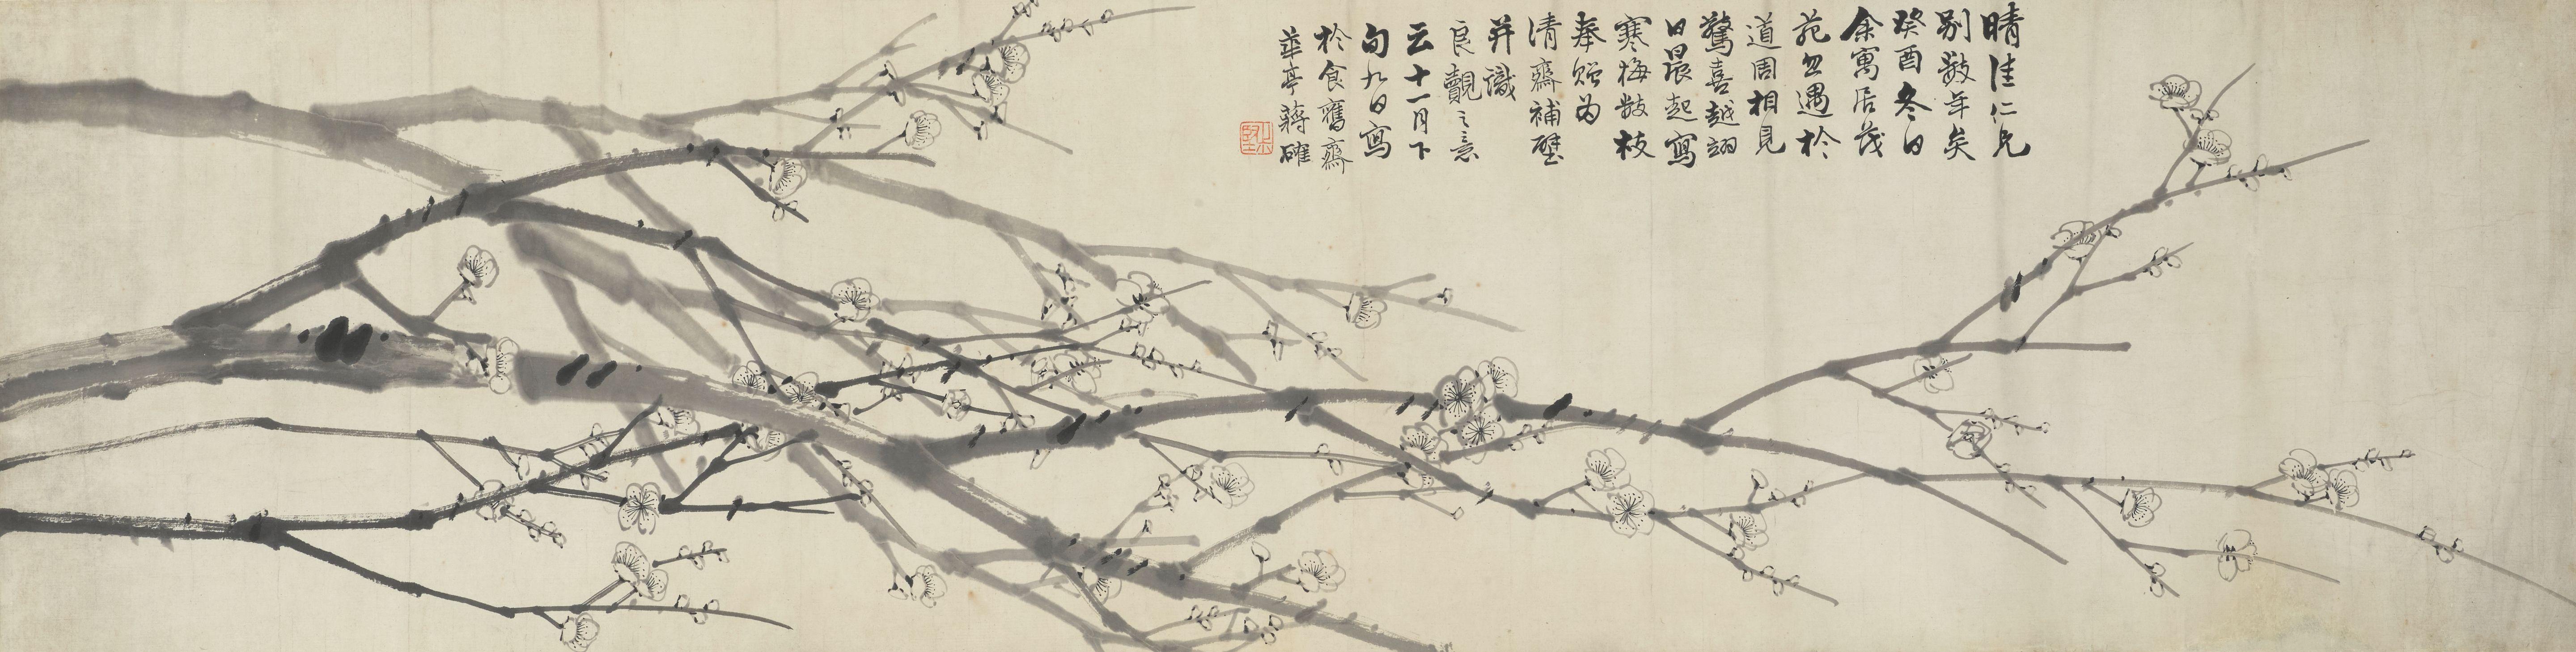 晴佳仁兄
別數年矣
癸酉冬日
余寓居茂
苑忽遇於
道周相見
驚喜越翊
日晨起寫
寒梅數枝
奉贈為
清齋補壁
并識
良覿之意
云十一月下
旬九日寫
於食舊齋
華亭蔣確